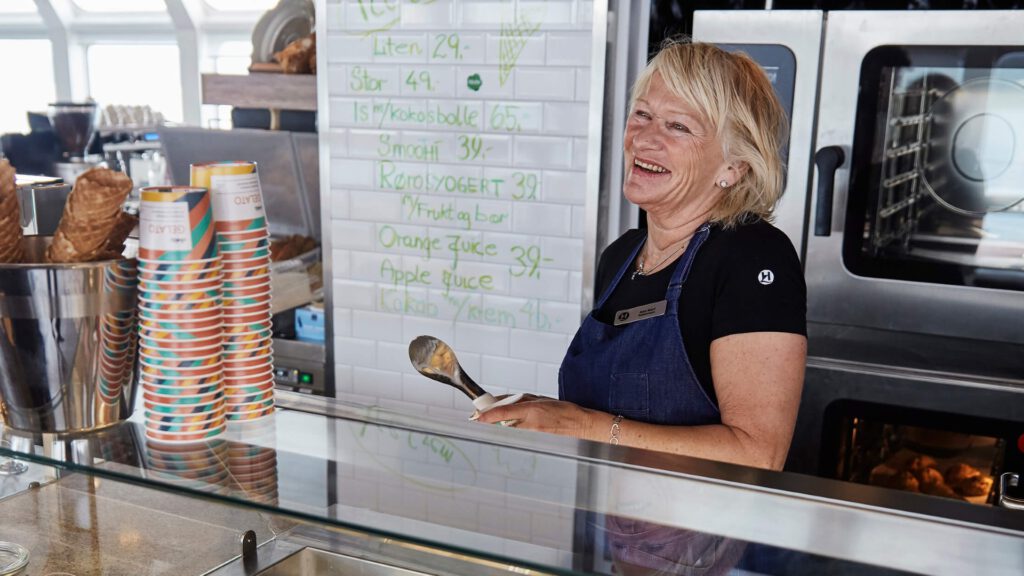 Liten 29.-
Stor 49.-
Is m/kokosbolle 65,-
Smoothi 39.-
RØROSYOGERT 39.
m/Frukt og bær
Orange juice 39.-
Apple juice
Kakao m/krem 46.-
GELATO
GELATO
H